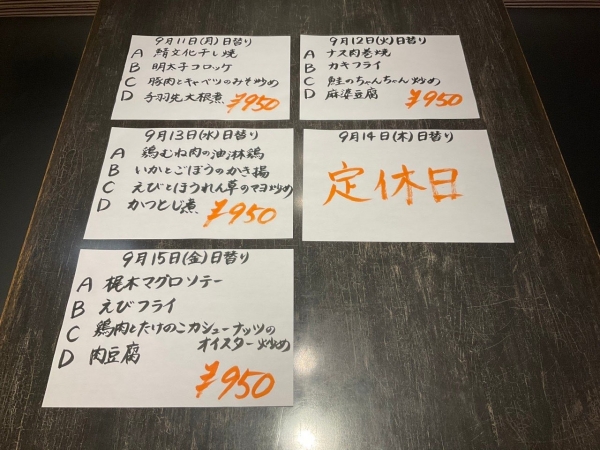 9月11日(月)日替り
A 鯖文化干し焼
B 明太子コロッケ
C 豚肉とキャベツのみそ炒め
D 手羽先大根煮
¥950
9月12日(火)日替り
A ナス肉巻焼
B カキフライ
C 鮭のちゃんちゃん炒め
D 麻婆豆腐
¥950
9月13日(水)日替り
A 鶏むね肉の油淋鶏
B いかとごぼうのかき揚
C えびとほうれん草のマヨ炒め
D かつとじ煮
¥950
9月14日(木)日替り
定休日
9月15日(金)日替り
A 梶木マグロソテー
B えびフライ
C 鶏肉とたけのこカシューナッツの
オイスター炒め
D 肉豆腐
¥950